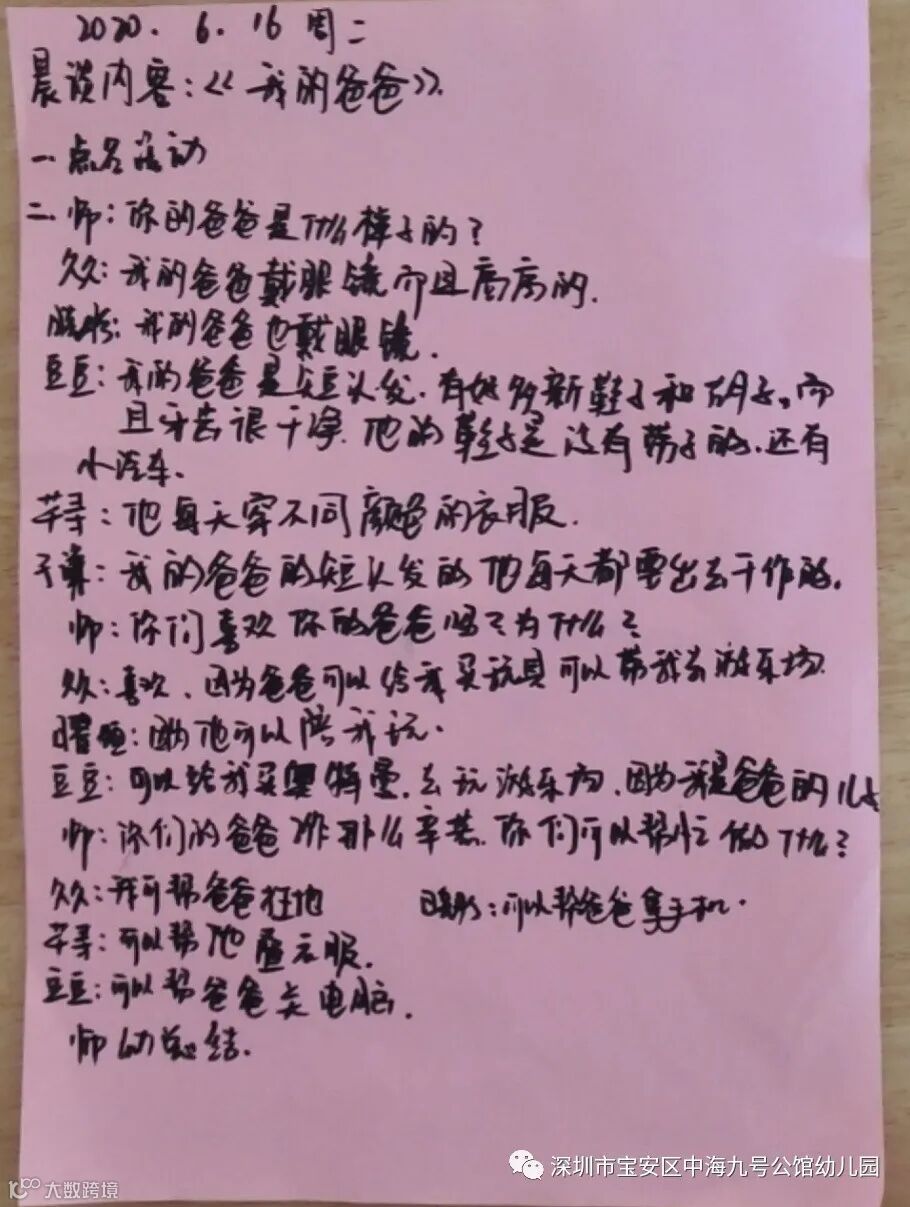 2020.6.16 周二
晨谈内容:《我的爸爸》.
一点名活动
二.师:你的爸爸是什么样子的?
久久:我的爸爸戴眼镜而且高高的.
我的爸爸也戴眼镜.
豆豆:我的爸爸是短头发.有好多新鞋子和胡子。而
且牙齿很干净.他的鞋子是没有带子的.还有
小汽车.
芊寻:他每天穿不同颜色的衣服.
我的爸爸的短头发的他每天都要出去干作的.
师:你们喜欢你的爸爸吗?为什么?
久久:喜欢.因为爸爸可以给我买玩具可以带我去游乐场.
因为他可以陪我玩.
豆豆:可以给我买奥特曼.去玩游乐场.因为我是爸爸的儿子
师:你们的爸爸那么辛苦.你们可以帮忙做什么?
久久:我可帮爸爸扫地 可以帮爸爸拿手机.
芊寻:可以帮他叠衣服.
豆豆:可以帮爸爸关电脑.
师幼总结.
深圳市宝安区中海九号公馆幼儿园
大数跨境